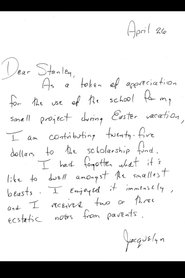 April 26
Dear Stanley,
As a token of appreciation
for the use of the school for my
small project during Easter vacation,
I am contributing twenty-five
dollars to the scholarship fund.
I had forgotten what it's
like to dwell amongst the smallest
beasts. I enjoyed it immensely,
and I received two or three
ecstatic notes from parents.
Jacquelyn